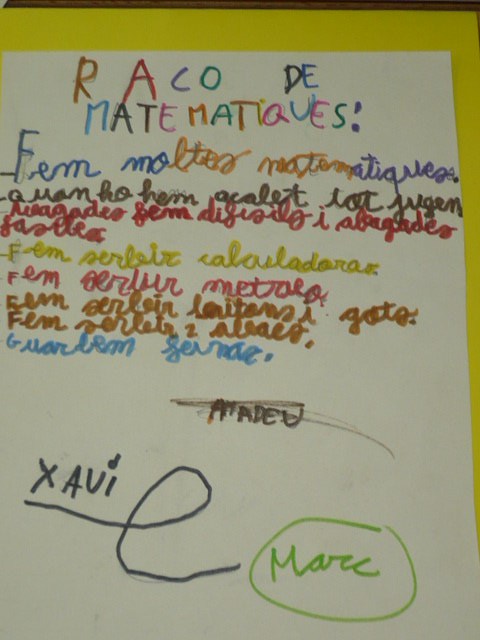 RACO DE
MATEMATIQUES!
Fem moltes matematiques.
quan ho hem acabat tot jugem
Avagades fem difisils i abagades
fasiles
Fem serbir calculadoras.
Fem serbir metros.
Fem serbir i gots.
Fem serbir
Guardem feinas.
AMADEU
XAVI
Marc